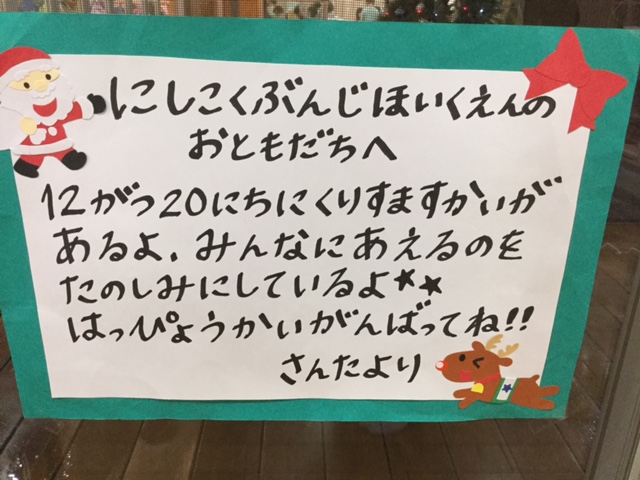 にしこくぶんじほいくえんの
おともだちへ
12がつ20にちにくりすますかいが
あるよ、みんなにあえるのを
たのしみにしているよ★★
はっぴょうかいがんばってね!!
さんたより